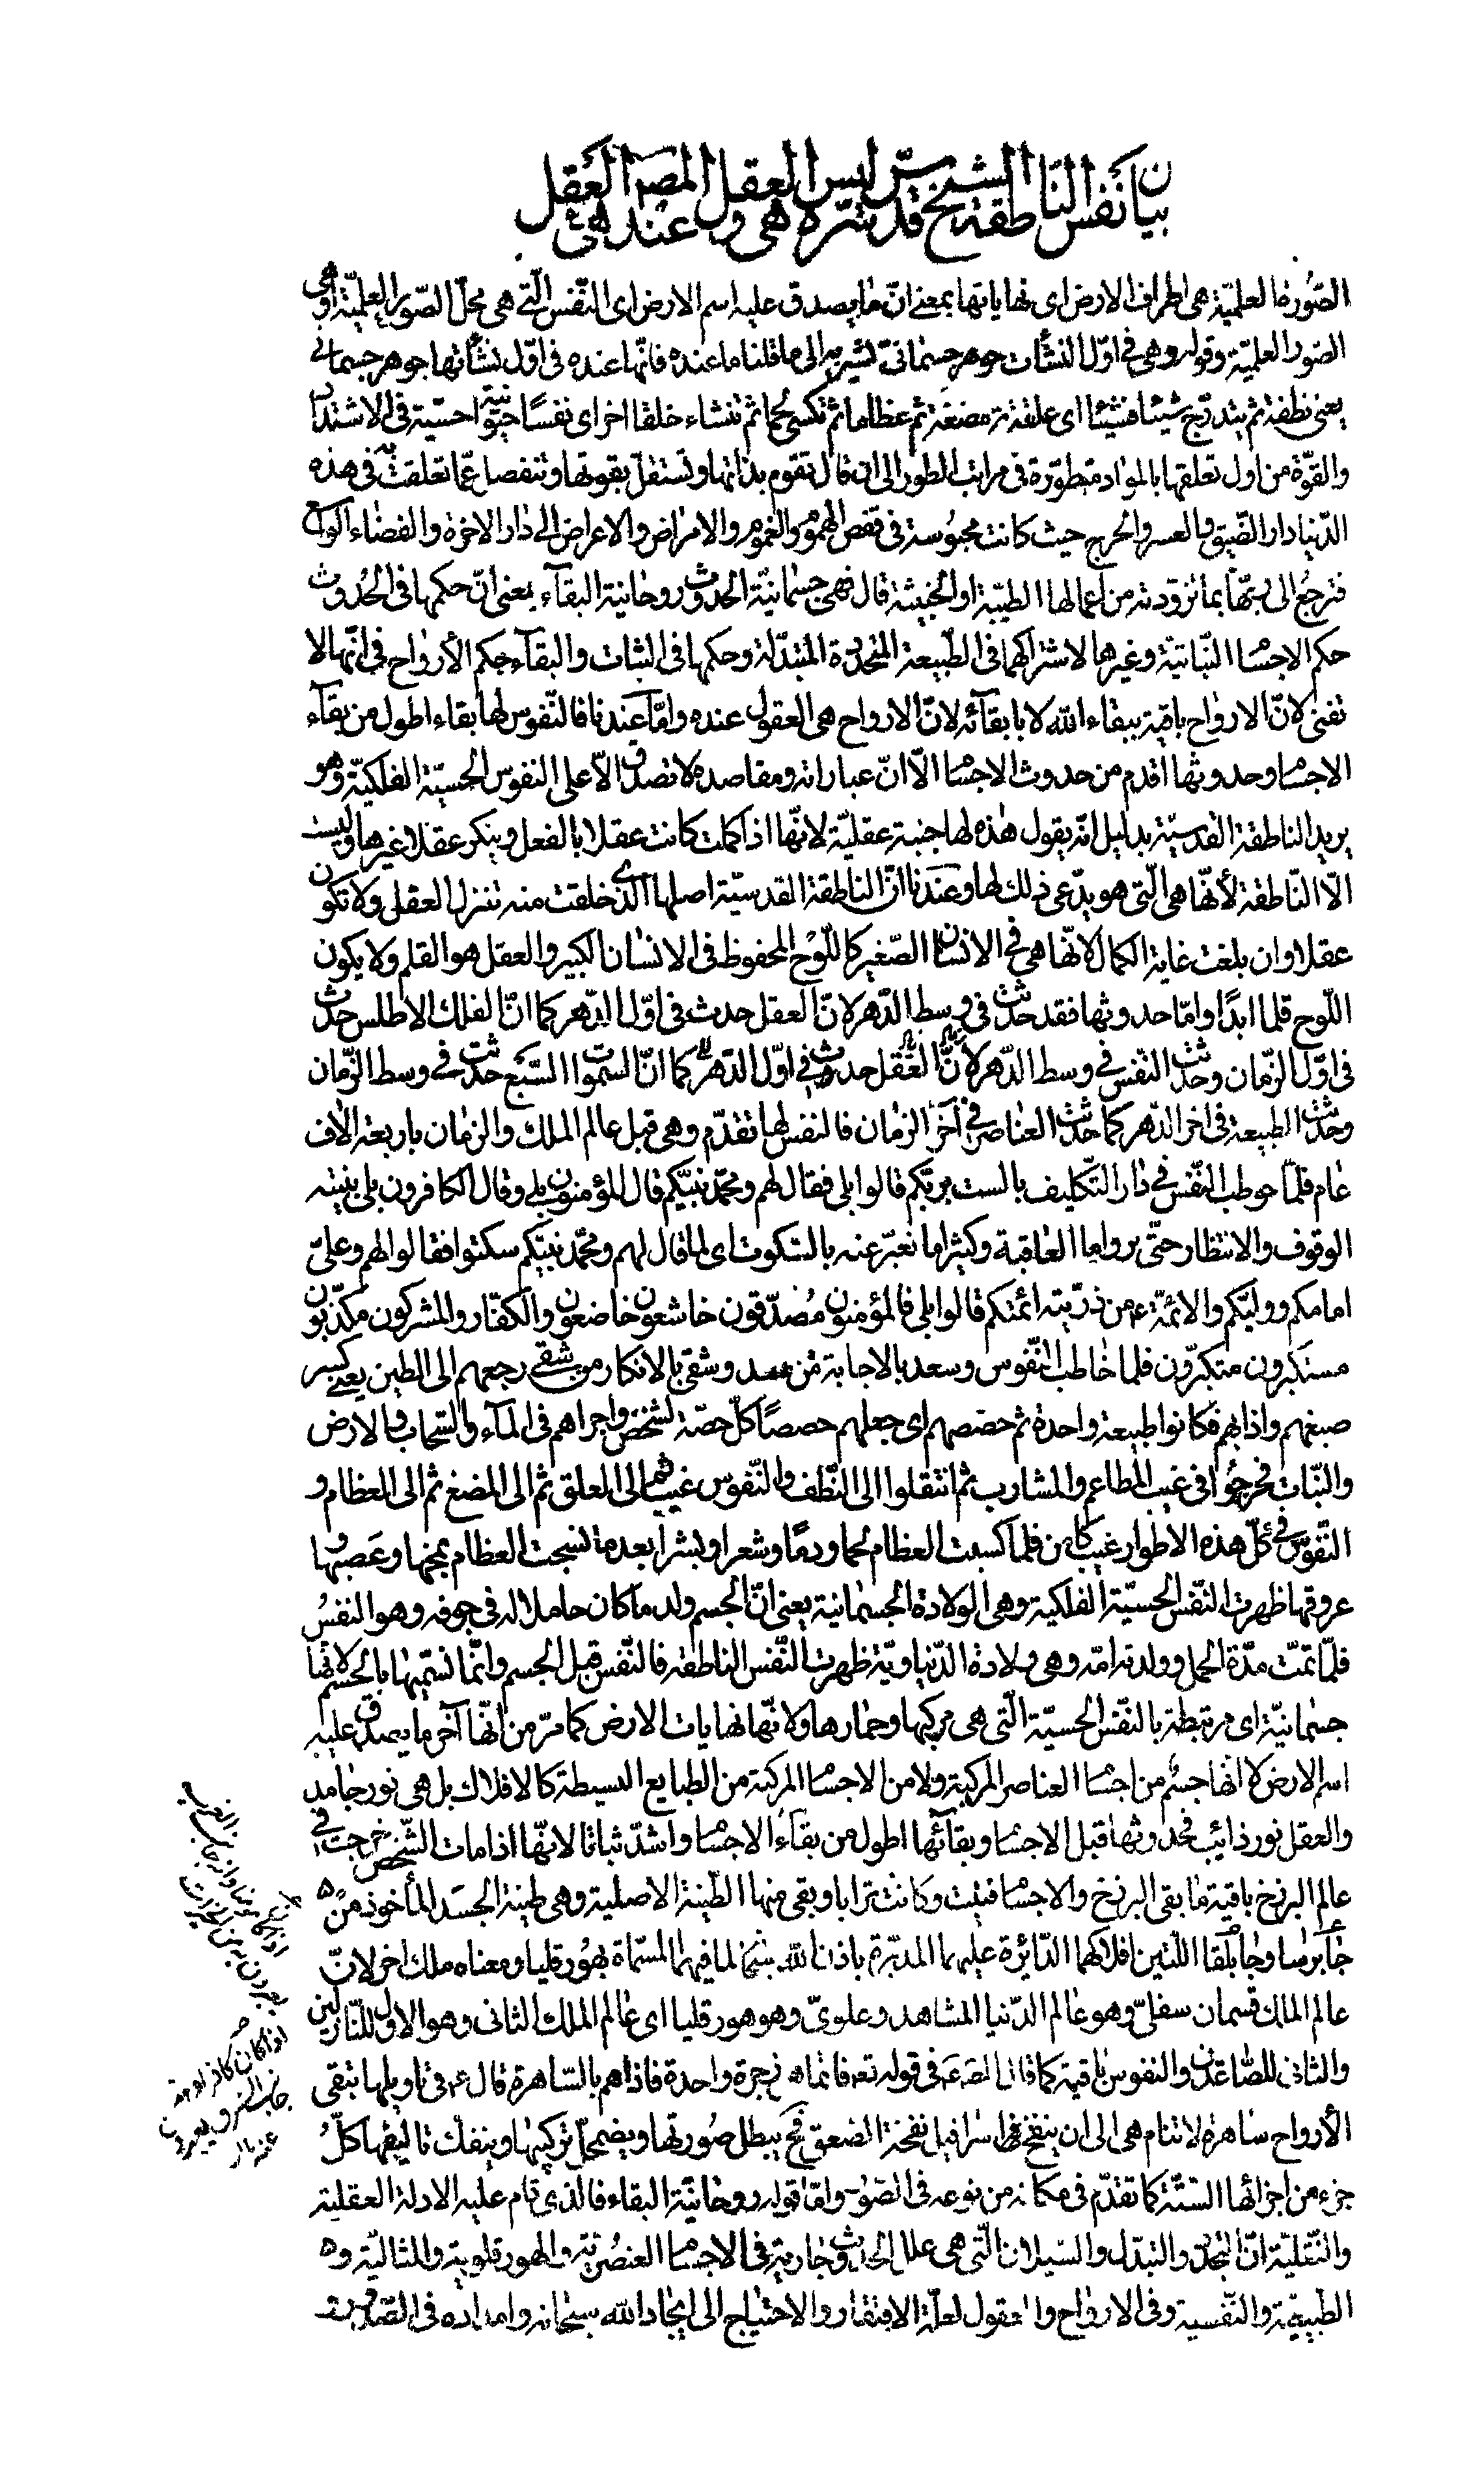 بيان نفس الناطقة الشيخ قدس سره ليس العقل هى و عند المصر العقل هى
الصّور العلميّة هى اطراف الارض اى نهاياتها بمعنے انّ ما يصدق عليه اسم الارض اى النّفس الّتے هى محلّ الصّور العلميّة او هى
الصّور العلميّة وقوله وهى فے اوّل النشأت جوهر جسمانىّ يشير به الى ما قلنا ما عنده فانّها عنده فى اوّل نشأتها جوهر جسمانے
يعنى نطفة ثم يتدرّج شيئا فشيئا اى علقة ثم مضغة ثم عظاما ثم تكسى لحما ثم تنشاء خلقا اخر اى نفسًا حيوانيّة حسيّة فى الاشتداد
والقوّة من اول تعلقها بالمواد متطوّرة فى مراتب الطور الى ان قال تقوم بذاتها وتستقلّ بقوتها وتنفصل عمّا تعلقت به فى هذه
الدّنيا دار الضّيق والعسر والحرج حيث كانت محبُوسة فى قفص الهموم والغموم والامراض والاعراض الى دار الاخرة والفضاء الواسع
فترجعُ الى ربّها بما تزودته من اعمالها الطيّبة او الخبيثة قال فهى جسمانيّة الحدُوث روحانية البقآء يعنى انّ حكمها فى الحُدوث
حكم الاجسٰام النّباتية وغيرها لاشتراكهما فى الطّبيعة المتجددة المتبدّلة وحكمها فى الثبات والبقآء حكم الأرواح فى انّها لا
تفنى لانّ الارواح باقية ببقاء الله لا بابقآئه لانّ الارواح هى العقول عنده وامّا عندنا فالنّفوس لها بقاء اطول من بقآء
الاجسٰام وحدوثها اقدم من حدوث الاجسٰام الّا انّ عباراته ومقاصده لا تصدق الّا على النفوس الحسيّة الفلكيّة وهو
يريد الناطقة القدسيّة بدليل انّه يقول هٰذه لها جنبة عقليّة لانّها اذا كملت كانت عقلا بالفعل وينكر عقلا غيرها وليست
الّا النّاطقة لأنّها هى الّتى هو يدّعى ذلك لها وعندنا انّ الناطقة القدسيّة اصلها الّذى خلقت منه تنزل العقل ولا تكون
عقلا وان بلغت غاية الكمال لانّها هى فے الانسٰان الصّغير كاللّوح المحفوظ فى الانسٰان الكبير والعقل هو القلم ولا يكون
اللّوح قلما ابدًا وامّا حدوثها فقد حدثت فى وسط الدّهر لانّ العقل حدث فى اوّل الدّهر كما انّ الفلك الاطلس حدث
فى اوّل الزّمان وحدثت النّفس فے وسط الدّهر لأنّ العقل حدث فے اوّل الدّهر كما انّ السمٰوات السّبع حدثت فے وسط الزّمان
وحدثت الطبيعة فى اخر الدّهر كما حدثت العناصر فے آخر الزمان فالنفس لها تقدّم وهى قبل عالم الملك والزمان باربعة الاف
عٰام فلمّا خوطب النّفس فے دٰار التّكليف بالست بربّكم قالوا بلى فقال لهم ومحمّد نبيّكم قال المؤمنون بلى وقال الكافرون بلى بنيّته
الوقوف والانتظار حتّى يروا ما العٰاقبة وكثيرا ما نعبّر عنه بالسّكوت اى لما قال لهم ومحمّد نبيّكم سكتوا فقالوا لهم وعلىّ
امامكم ووليّكم والائمّة ع من ذرّيته ائمّتكم قالوا بلى فالمؤمنون مُصدّقون خاشعون خاضعون والكفّار والمشركون مكذّبون
مستكبرون متكبرّون فلما خٰاطب النّفوس وسعد بالاجابة من سعد وشقى بالانكار من شقے رجعهم الى الطين يعنے كسر
صبغهم واذابهم فكانوا طبيعة واحدة ثم حصّصهم اى جعلهم حصصًا كلّ حصّة لشخص واجراهم فى المآء والسّحاب والارض
والنّبات فخرجوا فى غيب المطاعم والمشارب ثم انتقلوا الى النّطف والنّفوس غيب فيها الى العلق ثم الى المضغ ثم الى العظام و
النّفوس فے كلّ هذه الاطوار غيب كامن فلما اكسيت العظام لحما ودمًا وشعرا وبشرا بعد ما نسجت العظام بمخّها وعَصبها و
عروقها ظهرت النّفس الحسيّة الفلكية وهى الولادة الجسمٰانية يعنى انّ الجسم ولد ما كان حاملا له فى جوفه وهو النفسُ
فلمّا تمّت مدّة الحمل وولدته امّه وهى ولادة الدّنياويّة ظهرت النّفس الناطقة فالنّفس قبل الجسم وانّما نسمّيها بالجسم لانّها
جسمانيّة اى مرتبطة بالنّفس الحسيّة الّتى هى مركبها وحمارها ولانّها نهايات الارض كما مرّ من انّها آخر ما يصدق عليه
اسم الارض لا انّها جسم من اجسٰام العناصر المركبة ولا من الاجسٰام المركبة من الطبايع البسيطة كالافلاك بل هى نور جٰامد
والعقل نور ذائب فحدوثها قبل الاجسٰام وبقآئها اطول من بقآء الاجسٰام واشدّ ثباتا لانّها اذا مات الشّخص خرجت فے
عالم البرزخ باقية ما بقى البرزخ والاجسٰام فنيت وكانت ترابا وبقى منها الطّينة الاصلية وهى طينة الجسَد المأخوذ من
جٰابرسا وجٰابلقا اللّتين افلاكهما الدّائرة عليهما المدبّرة باذن الله سبحٰانه لما فيهما المسمّاة بهُورقليا ومعناه ملك اخر لانّ
عالم الملك قسمان سفلىّ وهو عٰالم الدّنيا المشاهد وعلوىّ وهو هورقليا اى عٰالم الملك الثانى وهو الاول للنّازلين
والثانى للصّاعدين والنفوس باقية كما قال الصّ ع فى قوله تعه فانّما هى زجرة واحدة فاذا هم بالسّاهرة قال ع فى تاويلها تبقى
الأرواح سٰاهرة لا تنام هى الى ان ينفخ اسرافيل نفخة الصّعق فح يبطل صُورتها ويضمحلّ تركيبها وينفك تاليفها كلّ
جزء من اجزائها الستّة كما تقدّم فى مكانه من نوعه فى الصّور وامّا قوله وروحانيّة البقاء فالذى قام عليه الادلة العقلية
والنّقليّة انّ التجدّد والتبدّل والسّيلان الّتى هى علل الحدوث جٰارية فى الاجسٰام العنصُريّة والهورقلويّة والمثاليّة و
الطبيعيّة والنّفسية وفى الارواح والعقول لعلّة الافتقار والاحتياج الى ايجاد الله سبحٰانه وامداده فى الصّدور
اذا كان كافرا